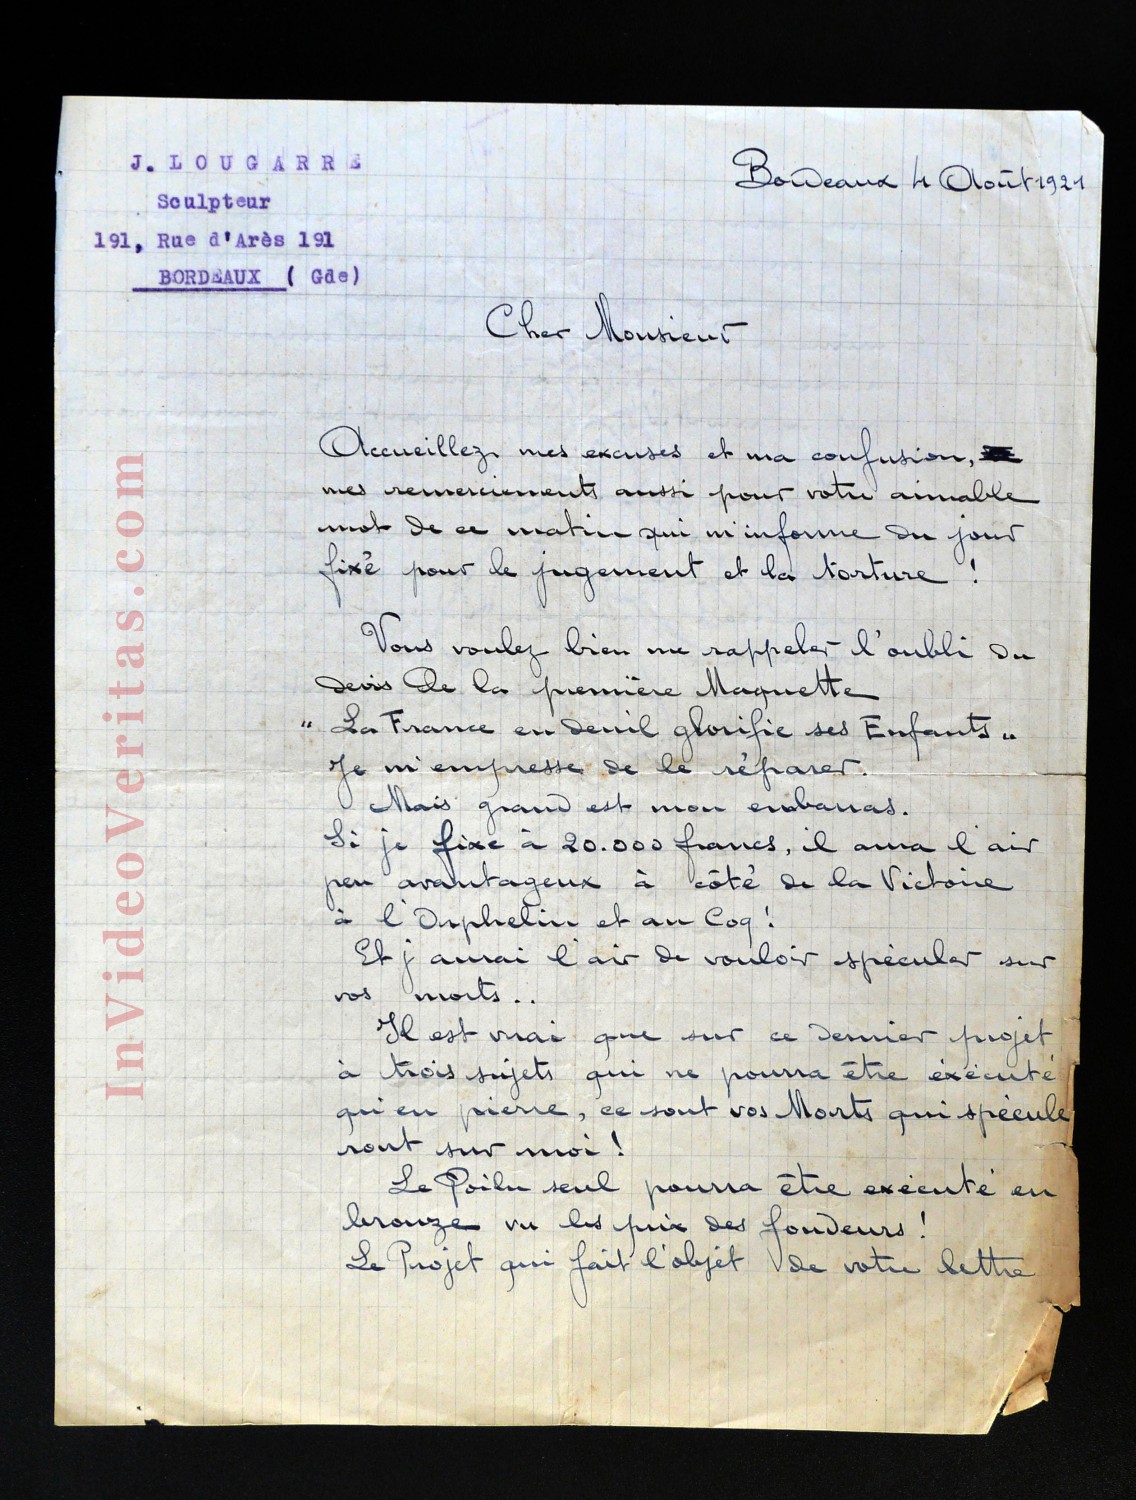 J. LOUGARRE
Sculpteur
191, Rue d'Arès 191
BORDEAUX ( Gde)
Bordeaux 4 Août 1921
Cher Monsieur
Accueillez mes excuses et ma confusion,
mes remerciements aussi pour votre aimable
mot de ce matin qui m'informe du jour
fixé pour le jugement et la torture !
Vous voulez bien me rappeler l'oubli du
devis de la première Maquette
" La France en deuil glorifie ses Enfants "
Je m'empresse de le réparer.
Mais grand est mon embarras.
Si je fixe à 20.000 francs, il aura l'air
peu avantageux à côté de la Victoire
à l'Orphelin et au Coq !
Et j'aurai l'air de vouloir spéculer sur
vos morts..
Il est vrai que sur ce dernier projet
à trois sujets qui ne pourra être éxécuté
qu'en pierre, ce sont vos Morts qui spécule
ront sur moi !
Le Poilu seul pourra être exécuté en
bronze vu les prix des fondeurs !
Le Projet qui fait l'objet de votre lettre
InVideoVeritas.com